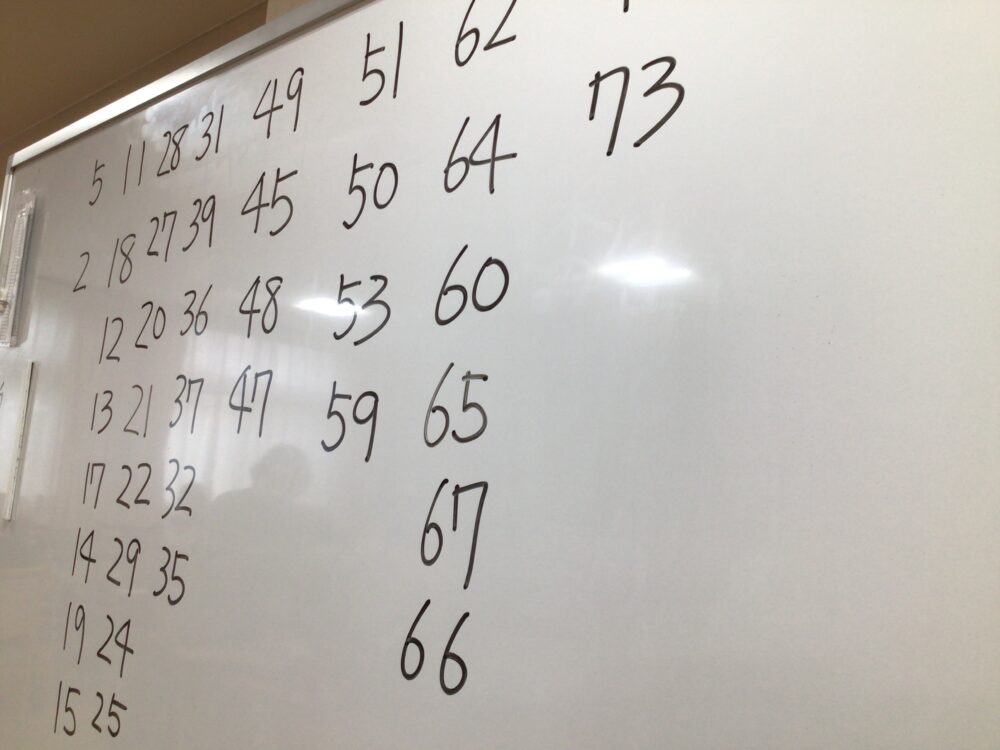 5 11 28 31 49 51 62
2 18 27 39 45 50 64 73
12 20 36 48 53 60
13 21 37 47 59 65
17 22 32 67
14 29 35 66
19 24
15 25